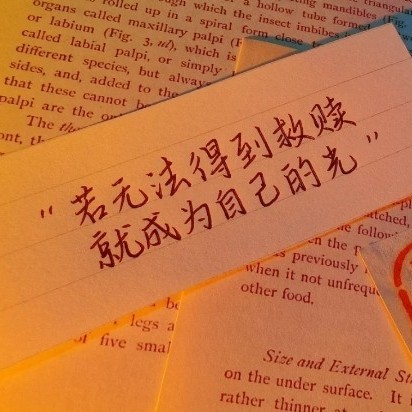 triangular
mandibles (Fig.
rolled up in a spiral form
of a hollow tube formed
organs called maxillary palpi (F
through which the insect imbibes
or labium (Fig. 3, ul), which is
close t
called labial palpi, or simply
different species, but alway
sides, and, added to the
that these cannot be
palpi are the
The
ont, th
“若无法得到救赎
就成为自己的光”
atched,
followi
n the
s previously
when it not unfrequ
other food.
be
legs a
of five smal
Size and External St
on the under surface. It
rather thinner a